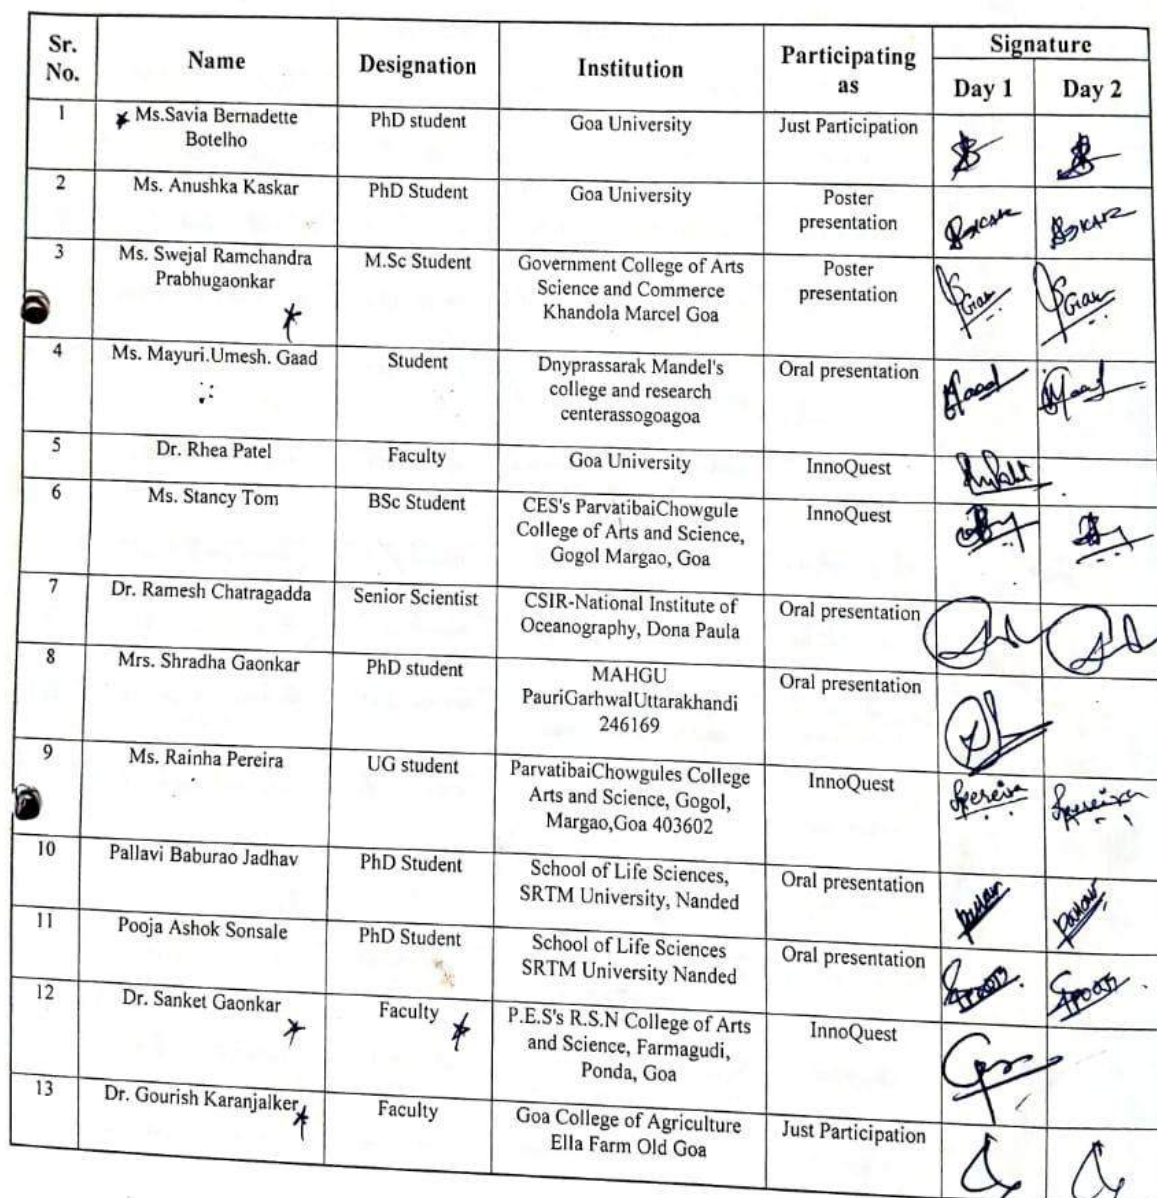 Sr. No. Name Designation Institution Participating as Signature
Day 1 Day 2
1 Ms.Savia Bernadette Botelho PhD student Goa University Just Participation
2 Ms. Anushka Kaskar PhD Student Goa University Poster presentation
3 Ms. Swejal Ramchandra Prabhugaonkar M.Sc Student Government College of Arts Science and Commerce Khandola Marcel Goa Poster presentation
4 Ms. Mayuri.Umesh. Gaad Student Dnyprassarak Mandel's college and research centerassogoagoa Oral presentation
5 Dr. Rhea Patel Faculty Goa University InnoQuest
6 Ms. Stancy Tom BSc Student CES's ParvatibaiChowgule College of Arts and Science, Gogol Margao, Goa InnoQuest
7 Dr. Ramesh Chatragadda Senior Scientist CSIR-National Institute of Oceanography, Dona Paula Oral presentation
8 Mrs. Shradha Gaonkar PhD student MAHGU PauriGarhwalUttarakhandi 246169 Oral presentation
9 Ms. Rainha Pereira UG student ParvatibaiChowgules College Arts and Science, Gogol, Margao,Goa 403602 InnoQuest Pereira Pereira
10 Pallavi Baburao Jadhav PhD Student School of Life Sciences, SRTM University, Nanded Oral presentation
11 Pooja Ashok Sonsale PhD Student School of Life Sciences SRTM University Nanded Oral presentation
12 Dr. Sanket Gaonkar Faculty P.E.S's R.S.N College of Arts and Science, Farmagudi, Ponda, Goa InnoQuest
13 Dr. Gourish Karanjalker Faculty Goa College of Agriculture Ella Farm Old Goa Just Participation